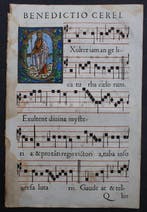 BENEDICTIO CEREI.
Xultet iam angeli
ca turba cælorum.
Exultent divina myste-
ria: & pro tanti regis victori a, tuba inso
net saluta ris. Gaude at & tel-
Q